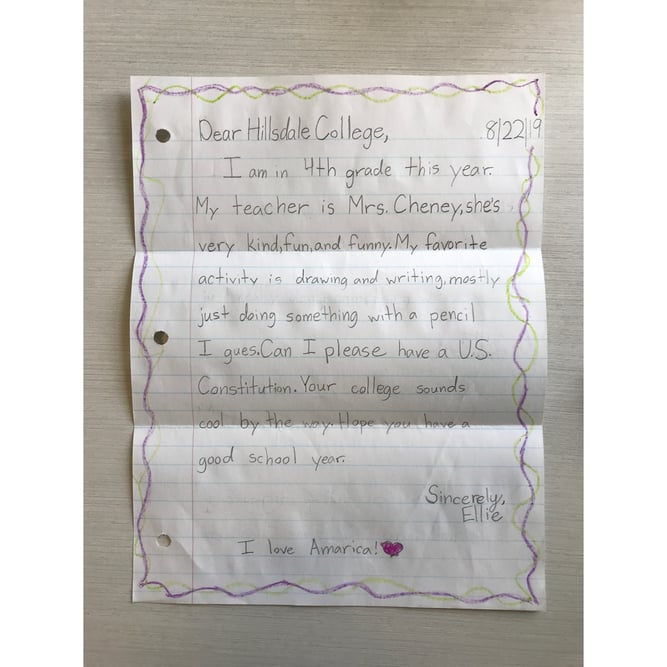 Dear Hillsdale College, 8/22/19
I am in 4th grade this year.
My teacher is Mrs. Cheney,she's
very kind,fun,and funny.My favorite
activity is drawing and writing,mostly
just doing something with a pencil
I gues.Can I please have a U.S.
Constitution.Your college sounds
cool by the way.Hope you have a
good school year.
Sincerely,
Ellie
I love Amarica!